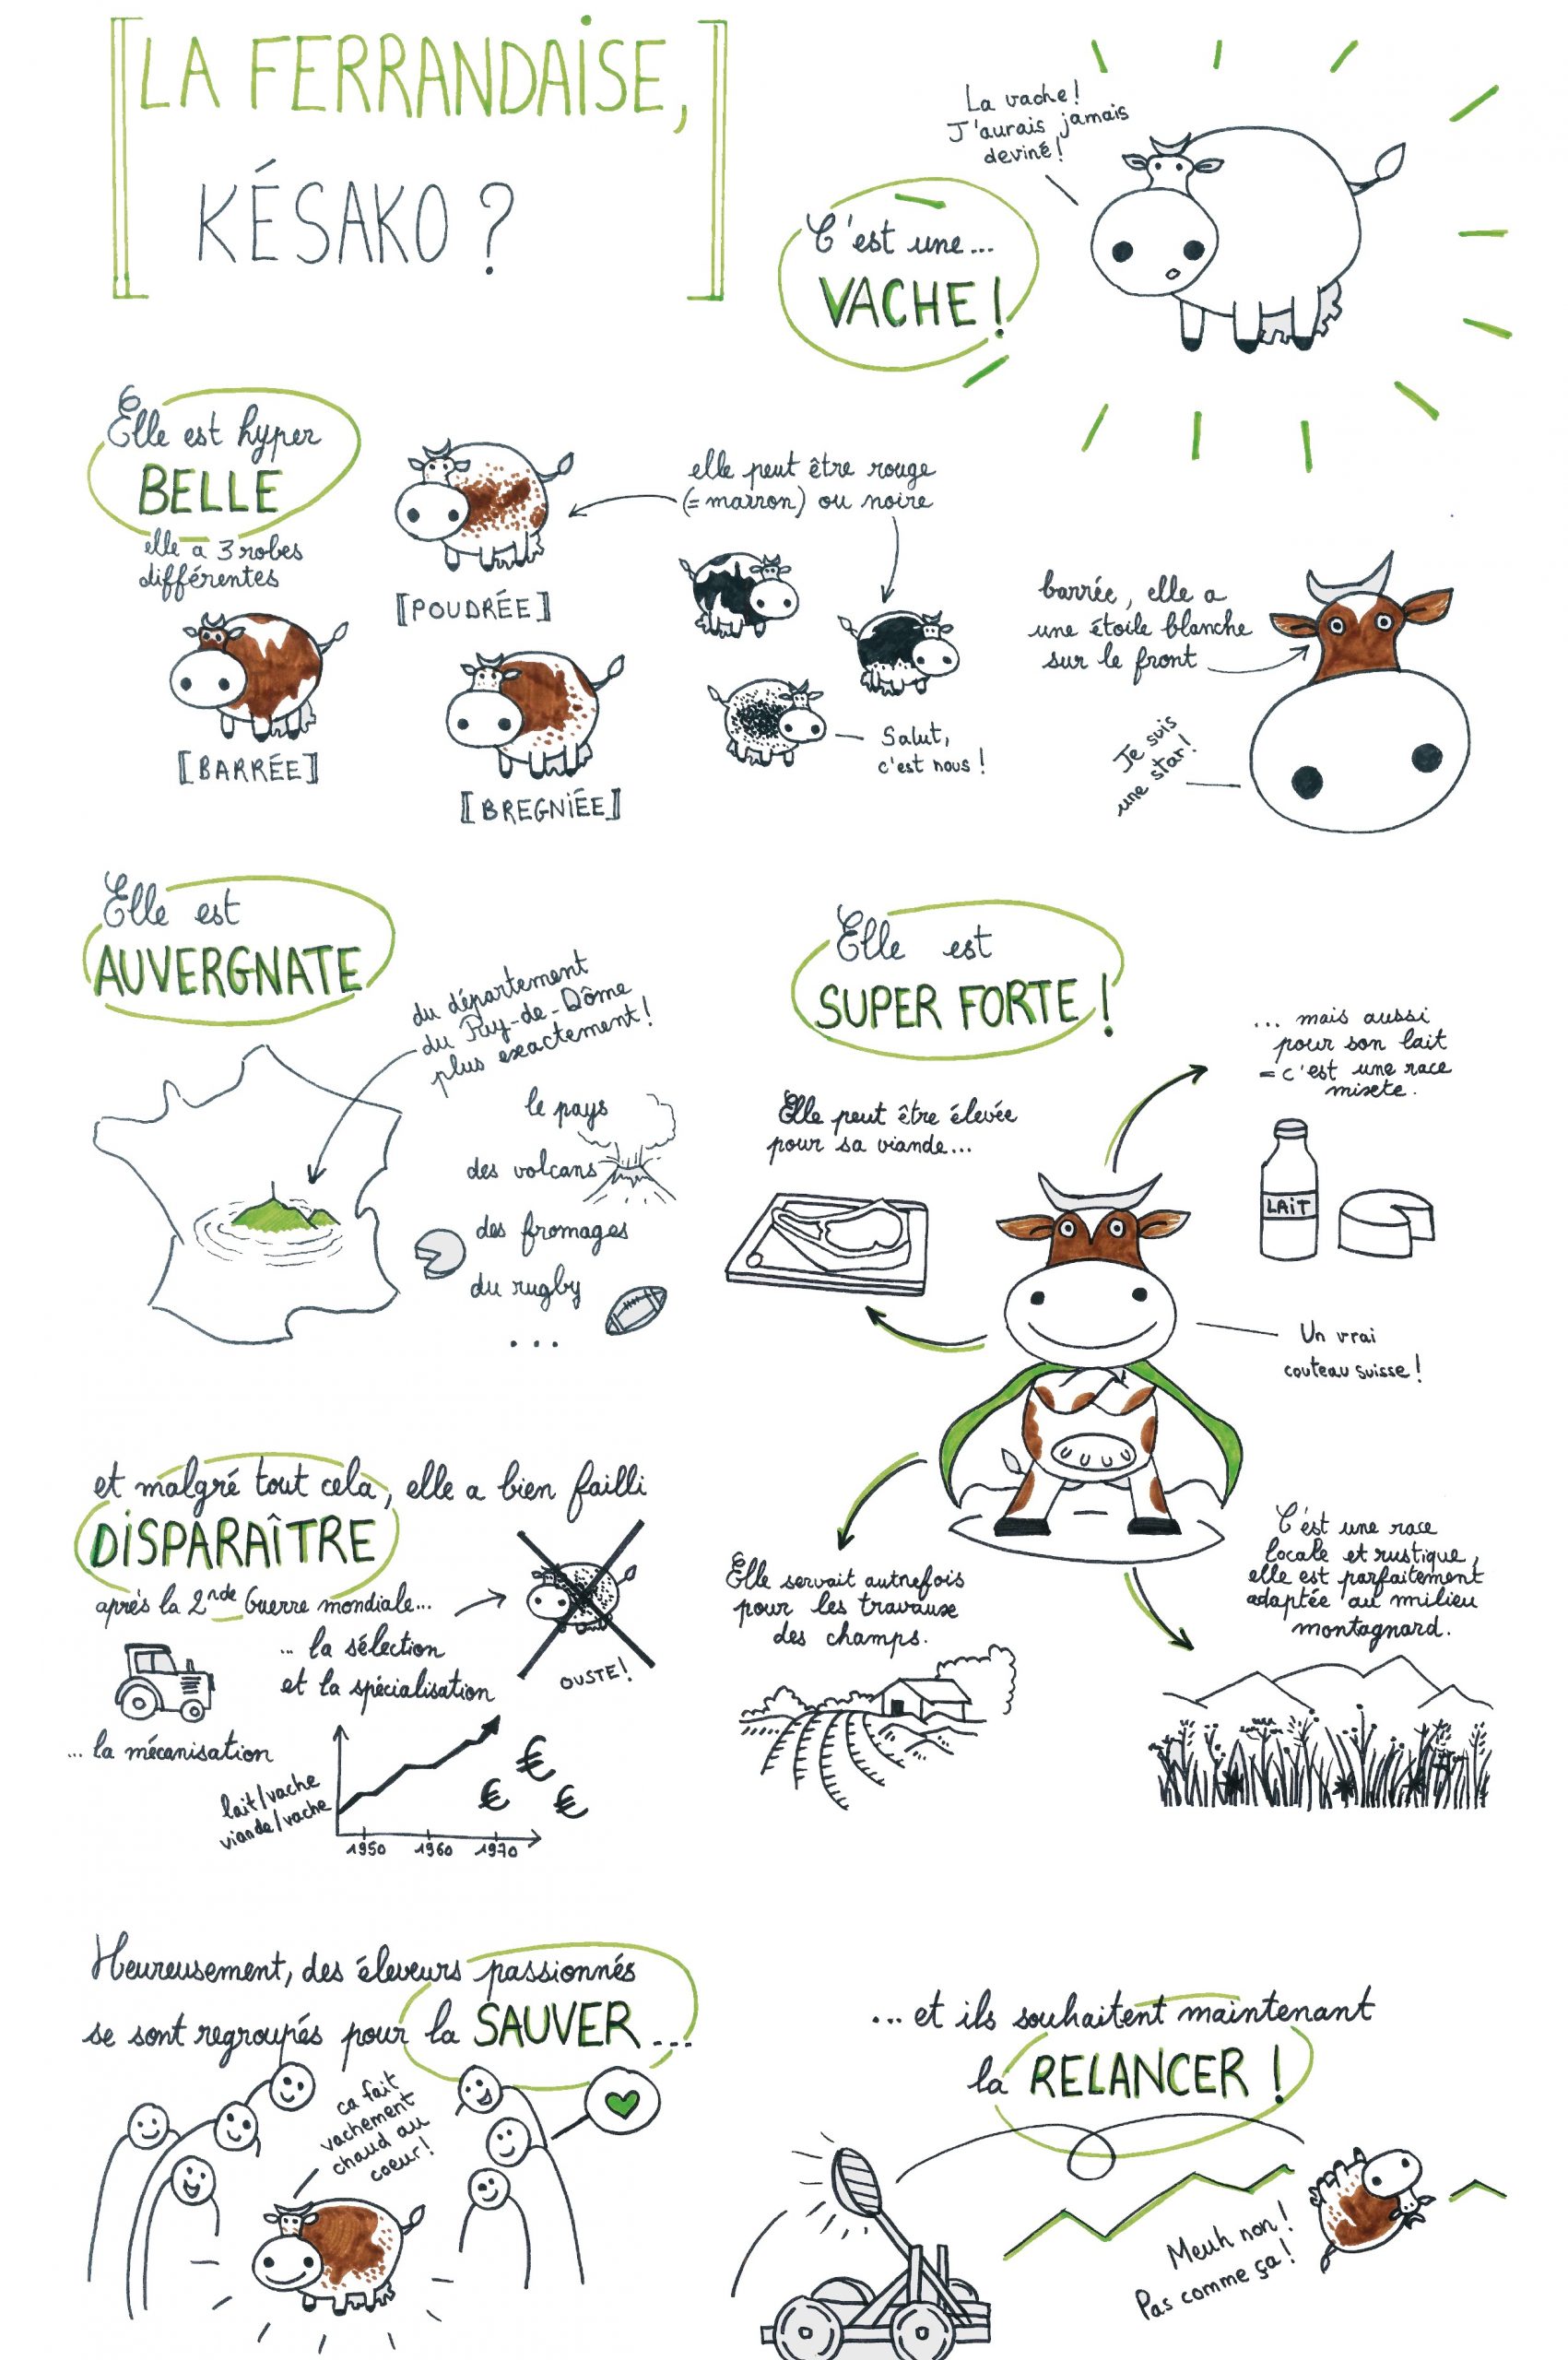 LA FERRANDAISE,
KÉSAKO ?
La vache !
J'aurais jamais
deviné !
C'est une...
VACHE !
Elle est hyper
BELLE
elle a 3 robes
différentes
[BARRÉE]
[POUDRÉE]
[BREGNIÉE]
elle peut être rouge
(= marron) ou noire
Salut,
c'est nous !
barrée, elle a
une étoile blanche
sur le front
Je suis
une star !
Elle est
AUVERGNATE
du département
du Puy-de-Dôme
plus exactement !
le pays
des volcans
des fromages
du rugby
...
Elle est
SUPER FORTE !
Elle peut être élevée
pour sa viande...
... mais aussi
pour son lait
= c'est une race
mixte.
LAiT
Un vrai
couteau suisse !
Elle servait autrefois
pour les travaux
des champs.
C'est une race
locale et rustique,
elle est parfaitement
adaptée au milieu
montagnard.
et malgré tout cela, elle a bien failli
DISPARAÎTRE
après la 2nde Guerre mondiale...
... la sélection
et la spécialisation
OUSTE !
... la mécanisation
lait/vache
viande/vache
€
€
€
1950 1960 1970
Heureusement, des éleveurs passionnés
se sont regroupés pour la SAUVER ...
ca fait
vachement
chaud au
coeur !
... et ils souhaitent maintenant
la RELANCER !
Meuh non !
Pas comme ça !